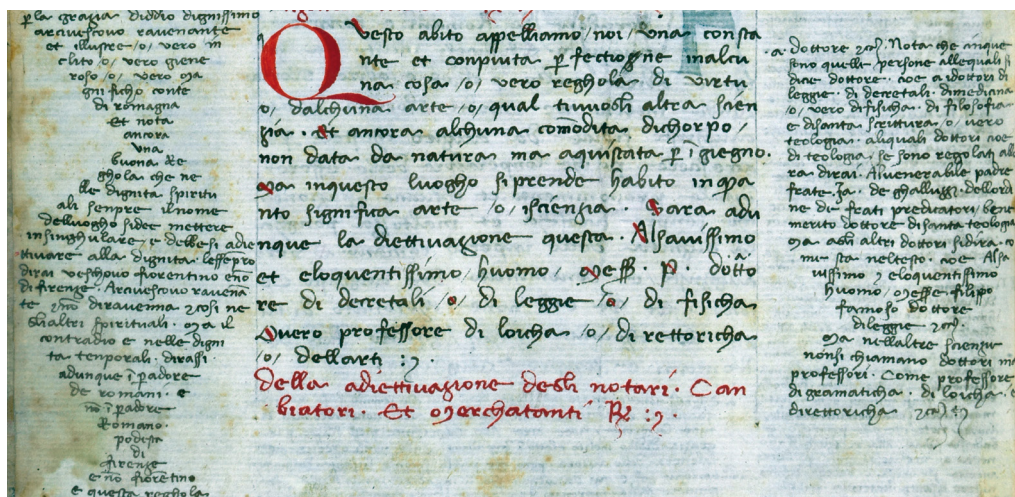 p la grazia diddio dignissimo
arcivescovo ravenante
et illustre /o/ vero in
clito /o/ vero giene
roso /o/ vero ma
gnificho conte
di romagna
Et nota
ancora
una
buona Re
ghola che ne
lle dignita spiritu
ali senpre il nome
delluogho sidee mettere
insinghulare, e dellesi adie
ttivare alla dignita. lessepro
dirai veschovo fiorentino e nō
di firenze. Arcvescovo ravenā
te e nō diravenna e cosi ne
gli altri spirituali. Ma il
contradio e nelle digni
ta tenporali. dirassi.
adunque ī padore
de romani. e
nō ī padore
Romano.
podesta
di
firenze
e nō fiorentino
e questa reghola
Questo abito appelliamo /noi/ una consta
nte et conpiuta p fectiogne inalcu
na cosa /o/ vero reghola di virtu
/o/ dalchuna arte /o/ qual tuvogli altra scien
zia. Et ancora alchuna comōdita dichorpo /
non data da natura ma aquistata p īgiegno.
Ma inquesto luogho si prende habito inqua
nto significa arte /o/ iscienzia. Sara adu
nque la diettivazione questa. Alsavissimo
et eloquentissimo / huomo / Mess. P. dotto
re di decretali /o/ di leggie /o/ di fisicha
Overo professore di loicha /o/ di rettoricha
/o/ dellarti :
della adiettivazione degli notari. Can
biatori. Et Merchatanti R :
.a. dottore 2c. Nota che cinque
sono quelle persone allequali si
dice dottore. coe a idottori di
leggie. di decretali. dimedicina
/o/ vero di fisicha. di filosofia
e disanta scrittura /o/ vero
teologia. aliquali dottori coe
di teologia. se sono regolati allo
ra dirai. Al venerabile padre
frate. Ja. de ghalluzzi. dellordi
ne di frati predicatori / bene
merito dottore disanta teologia
Ma agli altri dottori sidira. co
me sta neltesto. coe Alsa
vissimo e eloquentissimo
huomo / messe filippo
famoso dottore
dileggie 2c.
Ma nellaltre scienzie
nonsi chiamano dottori ma
professori. Come professore
di gramaticha. di loicha. e
direttoricha 2c.